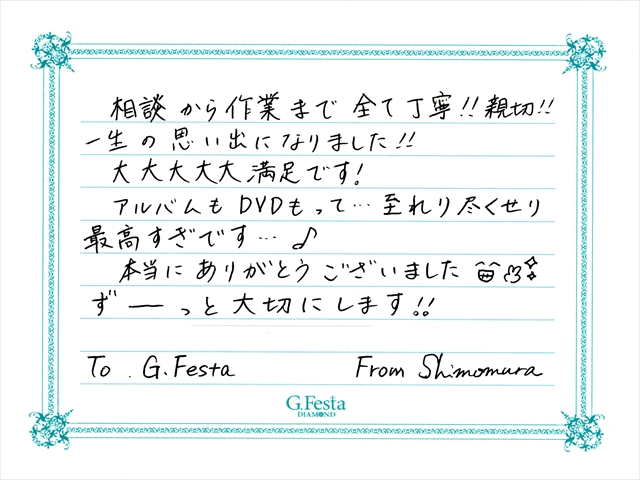 相談から作業まで全て丁寧!!親切!!
一生の思い出になりました!!
大大大大大満足です!
アルバムもDVDもって…至れり尽くせり
最高すぎです…♪
本当にありがとうございました
ず――っと大切にします!!
To . G.Festa From Shimomura
G.Festa
DIAMOND